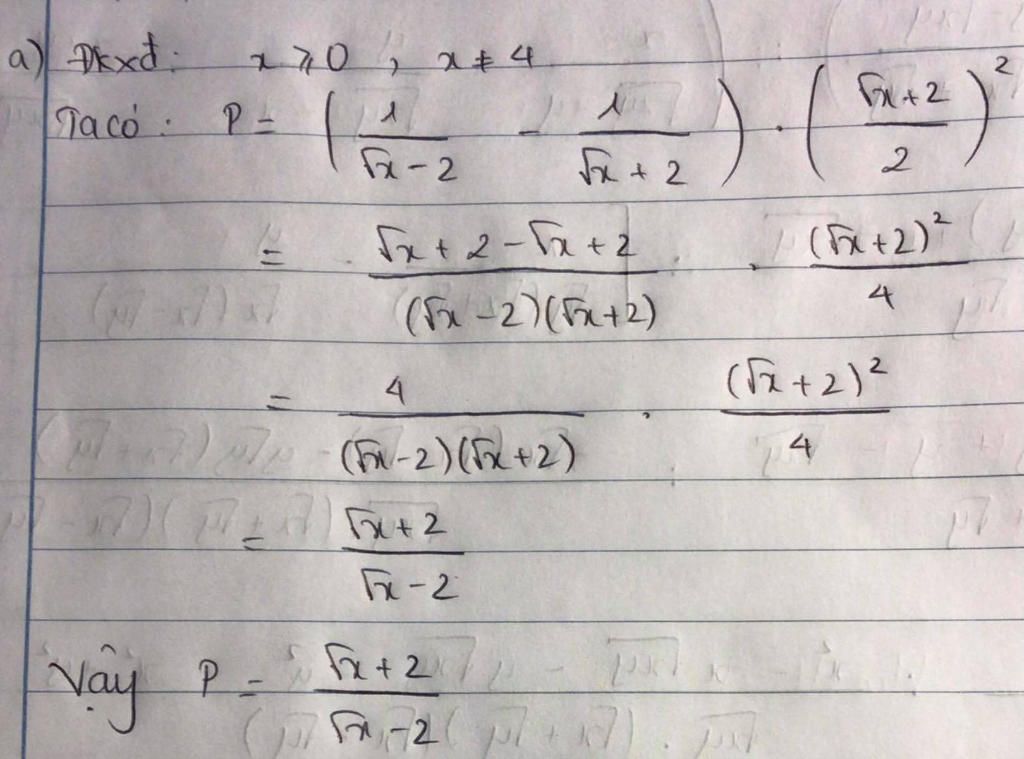 a) Đkxđ: x ⩾ 0 , x ≠ 4
Ta có: P = (1/(√x - 2) - 1/(√x + 2)) . ((√x + 2)/2)²
= (√x + 2 - √x + 2)/((√x - 2)(√x + 2)) . (√x + 2)²/4
= 4/((√x - 2)(√x + 2)) . (√x + 2)²/4
= (√x + 2)/(√x - 2)
Vậy P = (√x + 2)/(√x - 2)